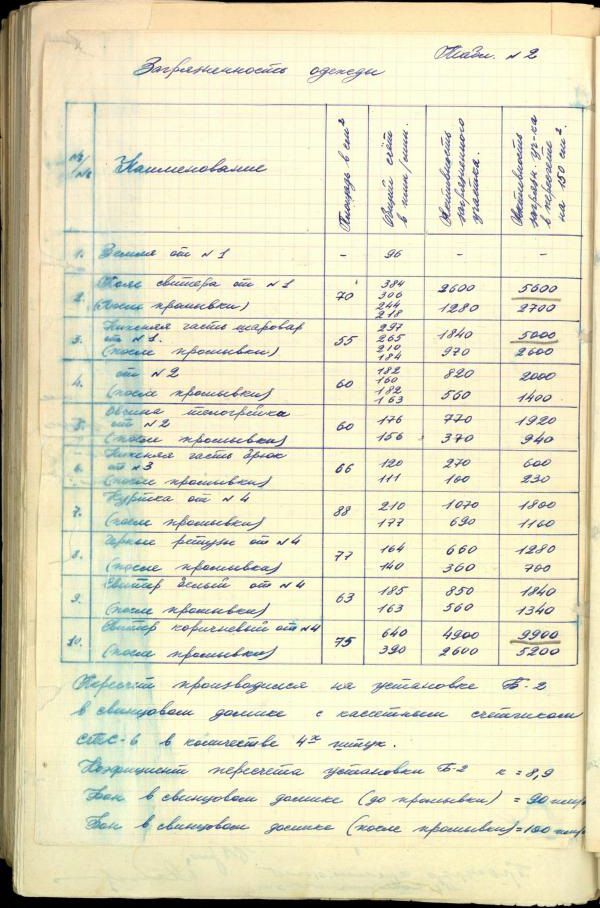 Табл. №2
Загрязненность одежды
№№ Наименование Площадь в см² Общий счёт в мин/имп. Активность загрязненного участка. Активность загрязн. уч-ка в пересчете на 150 см².
1. Земля от №1 – 96 – –
2. Пояс свитера от №1 70 384 306 2600 5600
(После промывки) 244 218 1280 2700
3. Нижняя часть шаровар от №1. 55 297 265 1840 5000
(после промывки) 210 184 970 2600
4. от №2 60 182 160 820 2000
(после промывки) 182 163 560 1400
5. Овчина телогрейка от №2 60 176 770 1920
(после промывки) 156 370 940
6. Нижняя часть брюк от №3 66 120 270 600
(после промывки) 111 100 230
7. Куртка от №4 88 210 1070 1800
(после промывки) 177 690 1160
8. Черные рейтузы от №4 77 164 660 1280
(после промывки) 140 360 700
9. Свитер от №4 63 185 850 1840
(после промывки) 163 560 1340
10. Свитер коричневый от №4 75 640 4900 9900
(после промывки) 390 2600 5200
Пересчет производился на установке Б-2
в свинцовом домике с кассетным счетчиком
СТС-6 в количестве 4х штук.
Коэфициент пересчета установки Б-2 к = 8,9
Фон в свинцовом домике (до промывки) = 90
Фон в свинцовом домике (после промывки) = 100